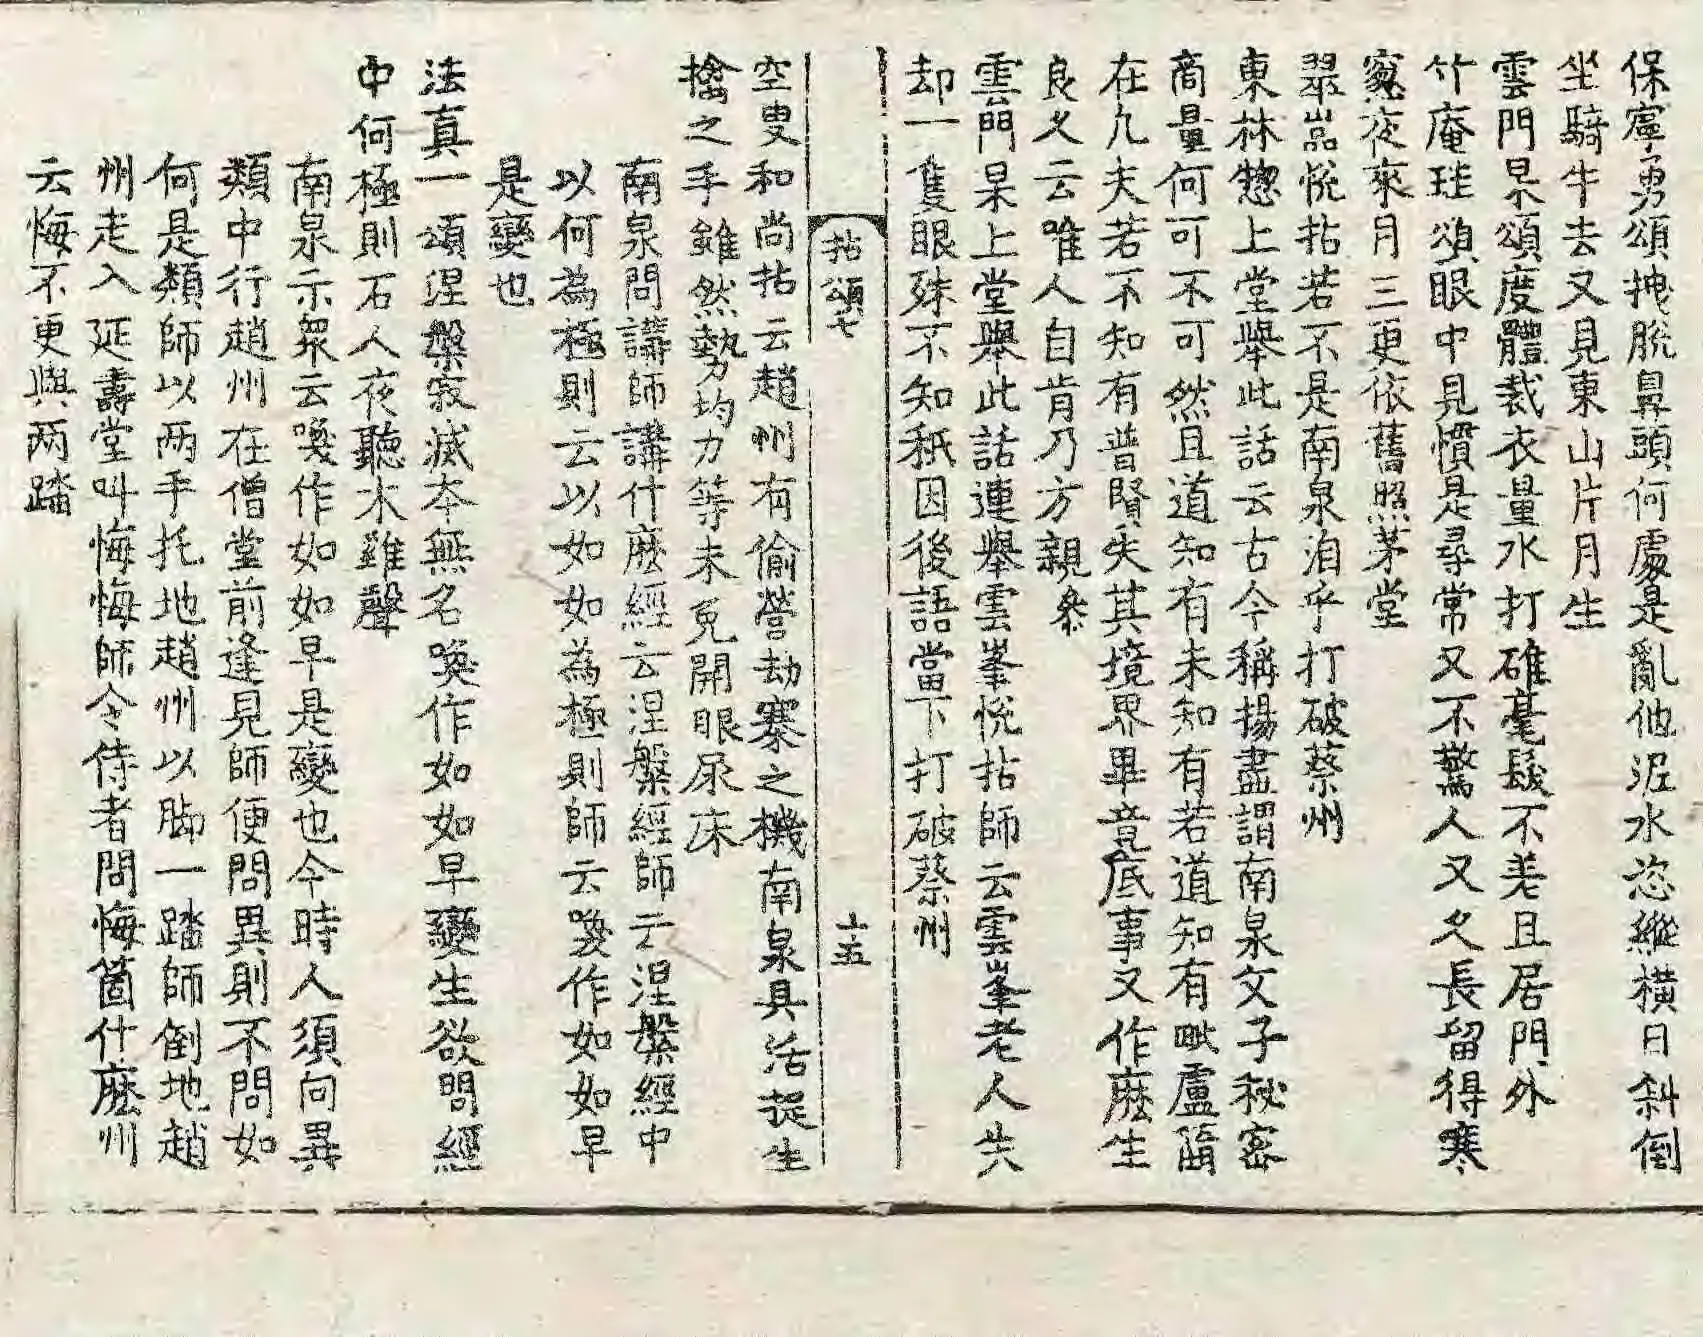 保寧勇頌拽脫鼻頭何處是亂他泥水恣縱橫日斜倒
坐騎牛去又見東山片月生
雲門杲頌度體裁衣量水打碓毫髮不差且居門外
竹庵珪頌眼中見慣是尋常又不驚人又久長留得寒
窻夜來月三更依舊照茅堂
翠嵓悅拈若不是南泉洎乎打破蔡州
東林惣上堂舉此話云古今稱揚盡謂南泉父子秘密
商量何可不可然且道知有未知有若道知有毗盧
在凢夫若不知有普賢失其境界畢竟底事又作麽生
良久云唯人自肯乃方親叅
雲門杲上堂舉此話連舉雲峯悅拈師云雲峯老人失
却一隻眼殊不知秖因後語當下打破蔡州
拈頌七
十五
空叟和尚拈云趙州有偷營劫寨之機南泉具活捉生
擒之手雖然勢均力等未免開眼尿床
南泉問講師講什麽經云涅槃經師云涅槃經中
以何為極則云以如如為極則師云喚作如如早
是變也
法真一頌涅槃寂滅本無名喚作如如早變生欲問經
中何極則石人夜聽木雞聲
南泉示衆云喚作如如早是變也今時人須向異
類中行趙州在僧堂前逢見師便問異則不問如
何是類師以两手托地趙州以脚一踏師倒地趙
州走入延壽堂叫悔悔師令侍者問悔箇什麽州
云悔不更與两踏